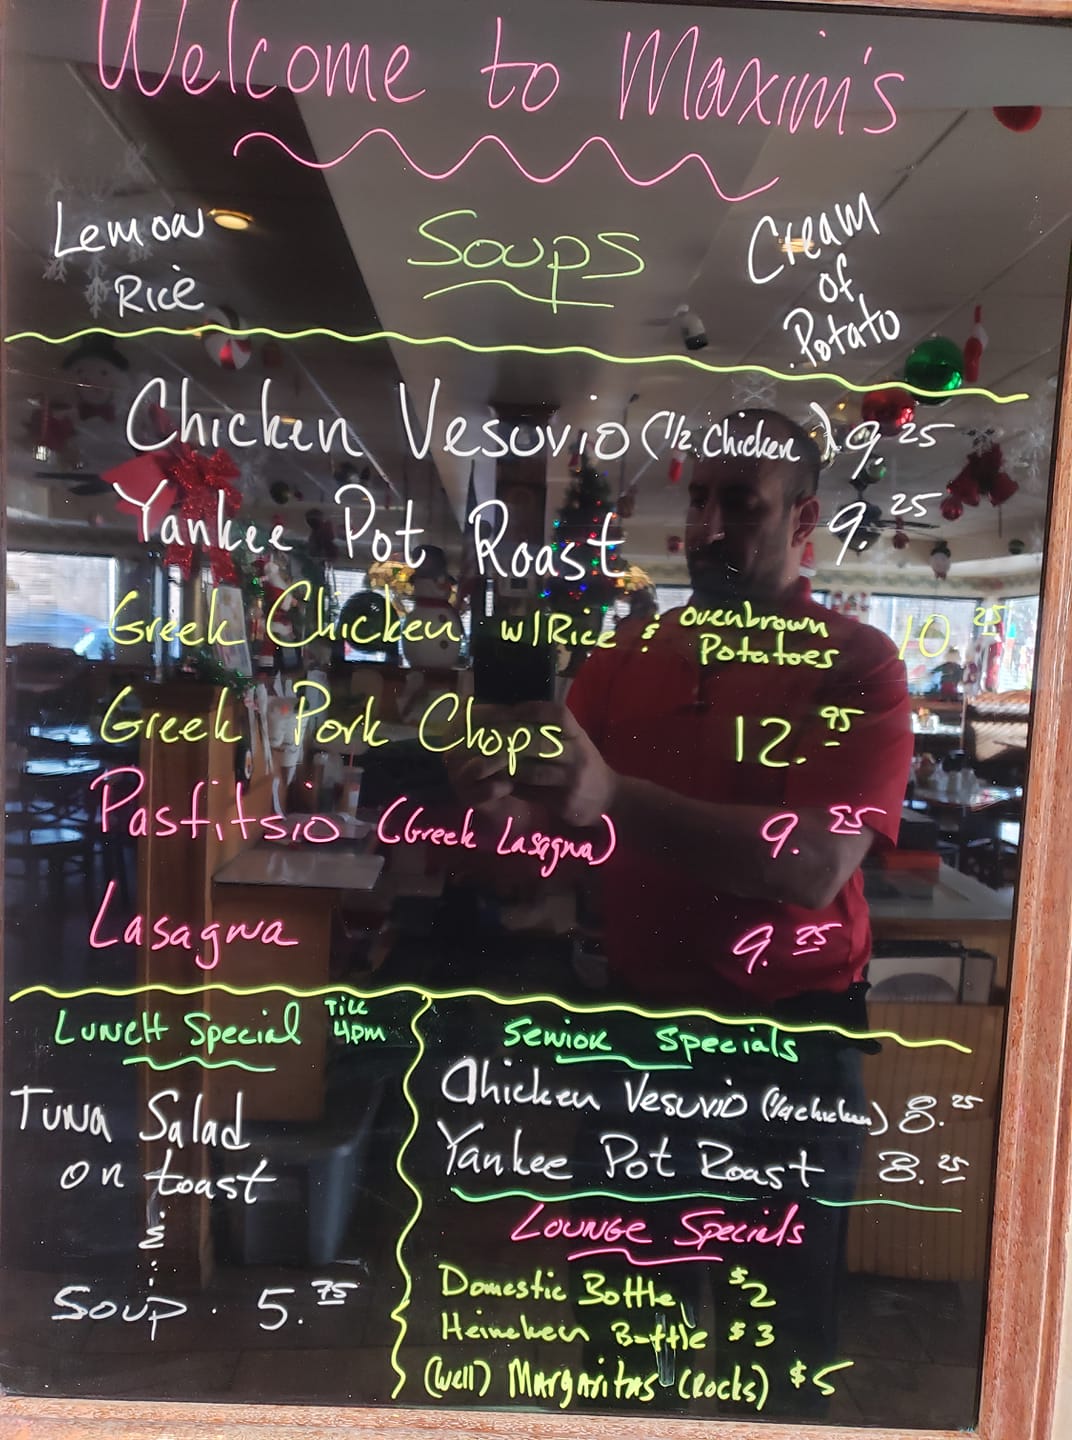 Welcome to Maxim's
Soups
Lemon
Rice
Cream
of
Potato
Chicken Vesuvio (1/2 Chicken) 9.25
Yankee Pot Roast 9.25
Greek Chicken w/Rice & ovenbrown Potatoes 10 25
Greek Pork Chops 12.95
Pastitsio (Greek Lasagna) 9.25
Lasagna 9.25
Lunch Special Till 4pm
Tuna Salad
on toast
&
Soup . 5.75
Senior Specials
Chicken Vesuvio (1/4 chicken) 8.25
Yankee Pot Roast 8.25
Lounge Specials
Domestic Bottle $2
Heineken Bottle $3
(Well) Margaritas (Rocks) $5